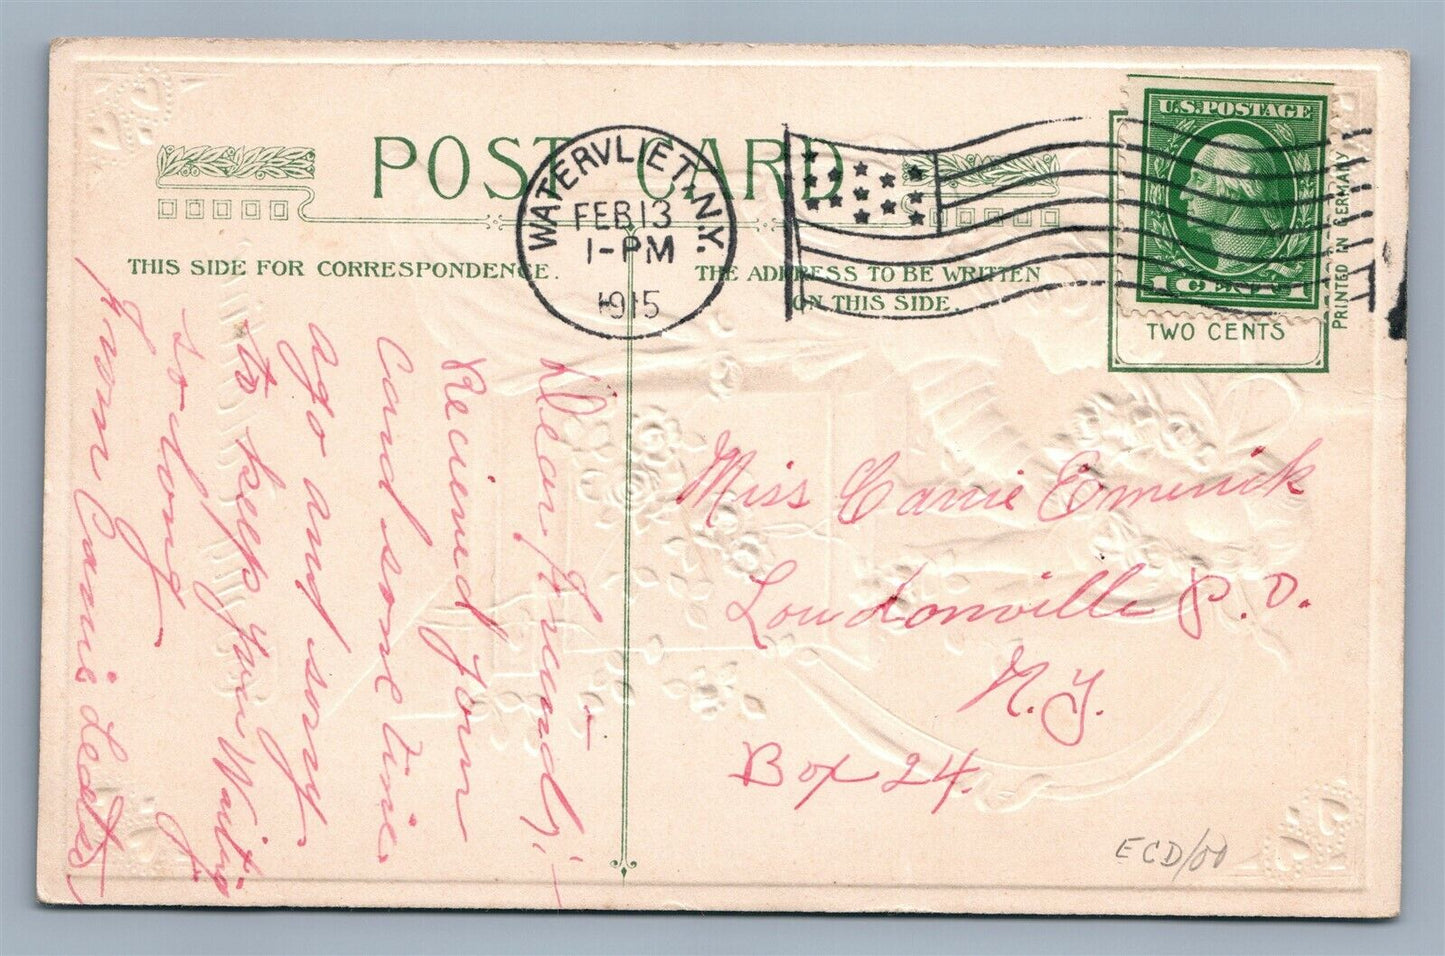 POST CARD
THIS SIDE FOR CORRESPONDENCE.
THE ADDRESS TO BE WRITTEN
ON THIS SIDE.
WATERVLIET, N.Y.
FEB 13
1-PM
1915
U.S. POSTAGE
1 CENT 1
TWO CENTS
PRINTED IN GERMANY
Dear Friend;-
Recieved your
Card some time
ago and sorry
to keep you Waiting
so long
From Carrie
Miss Carrie Emerick
Loudonville P.O.
N.Y.
Box 24.
ECD/00